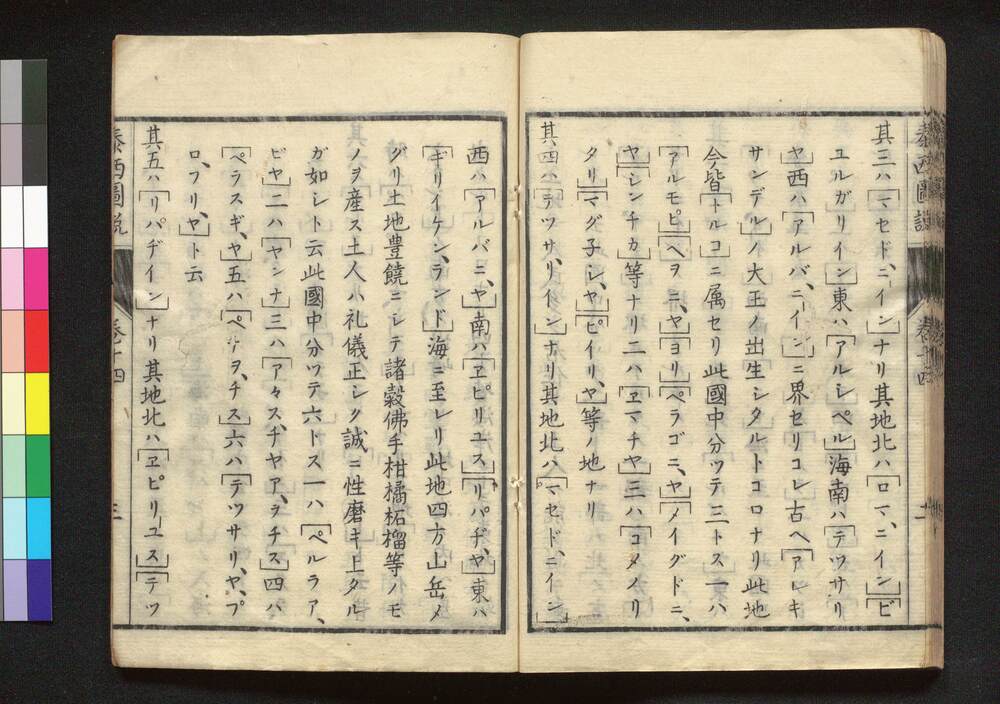 其三ハ「マセド、ニイン」ナリ其地北ハ「ロマ、ニイン」「ビ
ユルガリイン」東ハ「アルシペル」海南ハ「テツサリ
ヤ」西ハ「アルバ、ニイン」ニ界セリコレ古ヘ「アレキ
サンデル」ノ大王ノ出生シタルトコロナリ此地
今皆「トルコ」ニ属セリ此國中分ツテ三トス一東ハ
「アルモピ」「ヘヲニ、ヤ」「ヨリ」「ペラゴニ、ヤ」「メイグドニ、
ヤ」「シンチカ」等ナリ二ハ「ヱマチヤ」三ハ「コメノリ
タリ」「マグ子シ、ヤ」「ピイリ、ヤ」等ノ地ナリ
其四ハ「テツサ、リイン」ナリ其地北ハ「マセド、ニイン」
西ハ「アルバニ、ヤ」南ハ「ヱピリユス」「リパヂ、ヤ」東ハ
「ギリイケン、ランド」海ニ至レリ此地四方山岳メ
グリ土地豊饒ニシテ諸穀佛手柑橘柘榴等ノモ
ノヲ産ス土人ハ礼儀正シク誠ニ性磨キ上タル
ガ如シト云此國中分ツテ六トス一ハ「ペルラア、
ビヤ」二ハ「ヤンナ」三ハ「アタス、チヤア、ラチス」四ハ
「ペラスギ、ヤ」五ハ「ペ ヲ、チス」六ハ「テツサリ、ヤ、プ
ロ、フリ、ヤ」ト云
其五ハ「リパヂイン」ナリ其地北ハ「ヱピリユス」「テツ
泰西圖説
巻十四
三